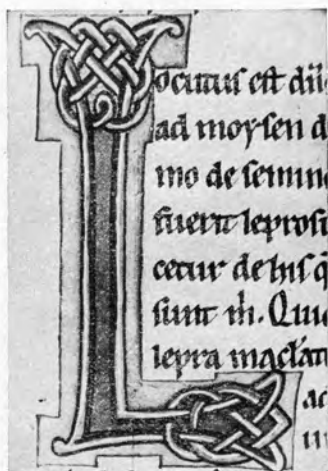 Locutus est dn̄s
ad moysen d
mo de semine
fuerit leprosu
cetur de his q
sunt m̄. Quic
lepra maclat
ac
m